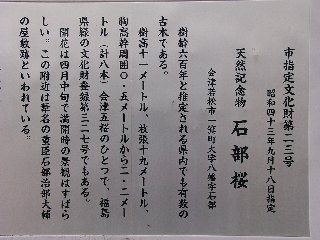 市指定文化財第二三号
昭和四十三年九月十八日指定
天然記念物 石部桜
会津若松市一箕町大字八幡字石部
樹齢六百年と推定される県内でも有数の
古木である。
樹高十一メートル、枝張十九メートル、
胸高幹周囲〇・五メートルから二・二メー
トル(計八本)会津五桜のひとつで、福島
県緑の文化財登録第三二七号でもある。
開花は四月中旬で満開時の景観はすばら
しい。この附近は葦名の重臣石部治部大輔
の屋敷跡といわれている。